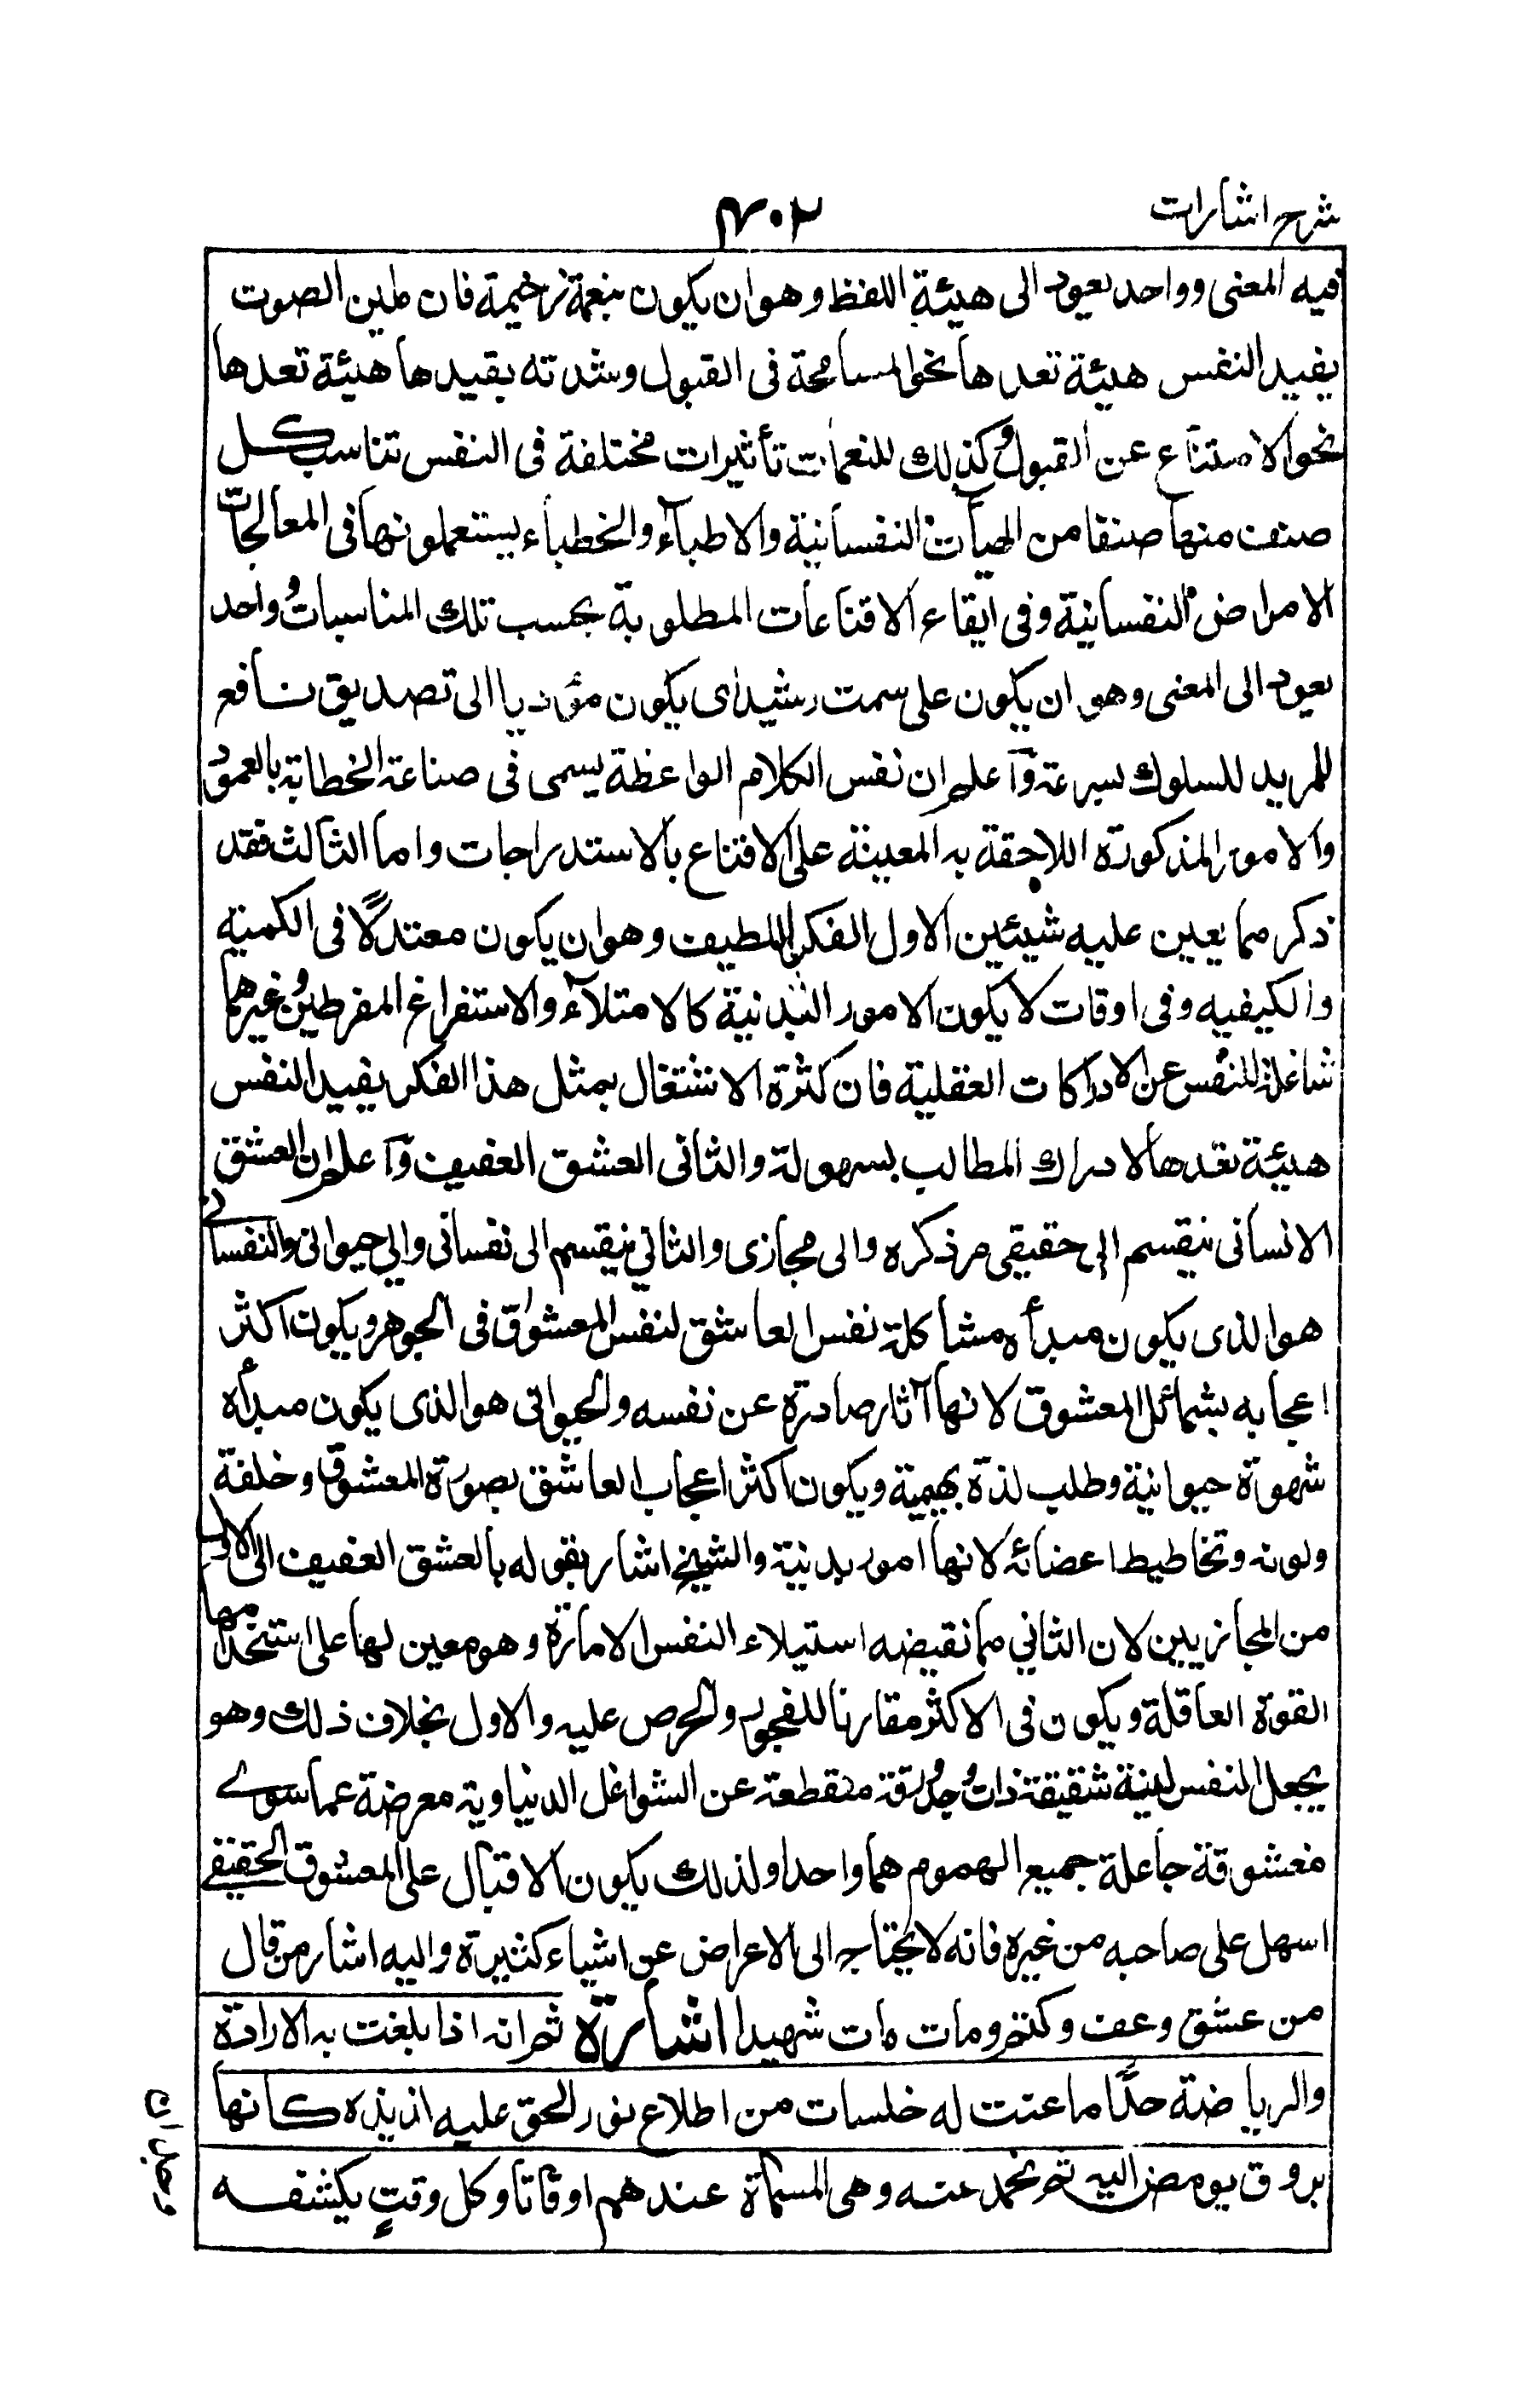 شرح اشارات
٤٠٢
فيه المعنى وواحد يعود الى هيئة اللفظ وهو ان يكون بنغمة رخيمة فان لين الصوت
يفيد النفس هيئة تعدها نحو المسامحة فى القبول وشدته يفيدها هيئة تعدها
نحو الامتناع عن القبول وكذلك للنغمات تأثيرات مختلفة فى النفس تناسب كل
صنف منها صنفا من الهيآت النفسانية والاطباء والخطباء يستعملونها فى المعالجات
الامراض النفسانية وفى ايقاع الاقناعات المطلوبة بحسب تلك المناسبات وواحد
يعود الى المعنى وهو ان يكون على سمت رشيد اى يكون مؤديا الى تصديق نافع
للمريد للسلوك بسرعة واعلم ان نفس الكلام الواعظة يسمى فى صناعة الخطابة بالعمود
والامور المذكورة اللاحقة به المعينة على الاقناع بالاستدراجات واما الثالث فقد
ذكر مما يعين عليه شيئين الاول الفكر اللطيف وهو ان يكون معتدلا فى الكمية
والكيفيه وفى اوقات لا يكون الامور البدنية كالامتلاء والاستفراغ المفرطين وغيرهما
شاغلة للنفس عن الادراكات العقلية فان كثرة الاشتغال بمثل هذا الفكر يفيد النفس
هيئة تعدها لادراك المطالب بسهولة والثانى العشق العفيف واعلم ان العشق
الانسانى ينقسم الى حقيقى مر ذكره والى مجازى والثانى ينقسم الى نفسانى والى حيوانى والنفسانى
هو الذى يكون مبدأه مشاكلة نفس العاشق لنفس المعشوق فى الجوهر ويكون اكثر
اعجابه بشمائل المعشوق لانها آثار صادرة عن نفسه والحيوانى هو الذى يكون مبدأه
شهوة حيوانية وطلب لذة بهيمية ويكون اكثر اعجاب العاشق بصورة المعشوق وخلقة
ولونه وتخاطيط اعضائه لانها امور بدنية والشيخ اشار بقوله بالعشق العفيف الى الاول
من المجازيين لان الثانى مما نقيضه استيلاء النفس الامارة وهو معين لها على استخدامها
القوة العاقلة ويكون فى الاكثر مقارنا للفجور والحرص عليه والاول بخلاف ذلك وهو
يجعل النفس لينة شقيقة ذات وجد ورقة منقطعة عن الشواغل الدنياوية معرضة عما سوى
معشوقة جاعلة جميع الهموم هما واحدا ولذلك يكون الاقبال على المعشوق الحقيقى
اسهل على صاحبه من غيره فانه لا يحتاج الى الاعراض عن اشياء كثيرة واليه اشار من قال
من عشق وعف وكتم ومات مات شهيدا اشارة ثم انه اذا بلغت به الارادة
والرياضة حدًا ما عنت له خلسات من اطلاع نور الحق عليه لذيذه كانها
بروق يومض اليه ثم تخمد عنه وهى المسماة عندهم اوقاتا وكل وقت يكشنفه
وجدان